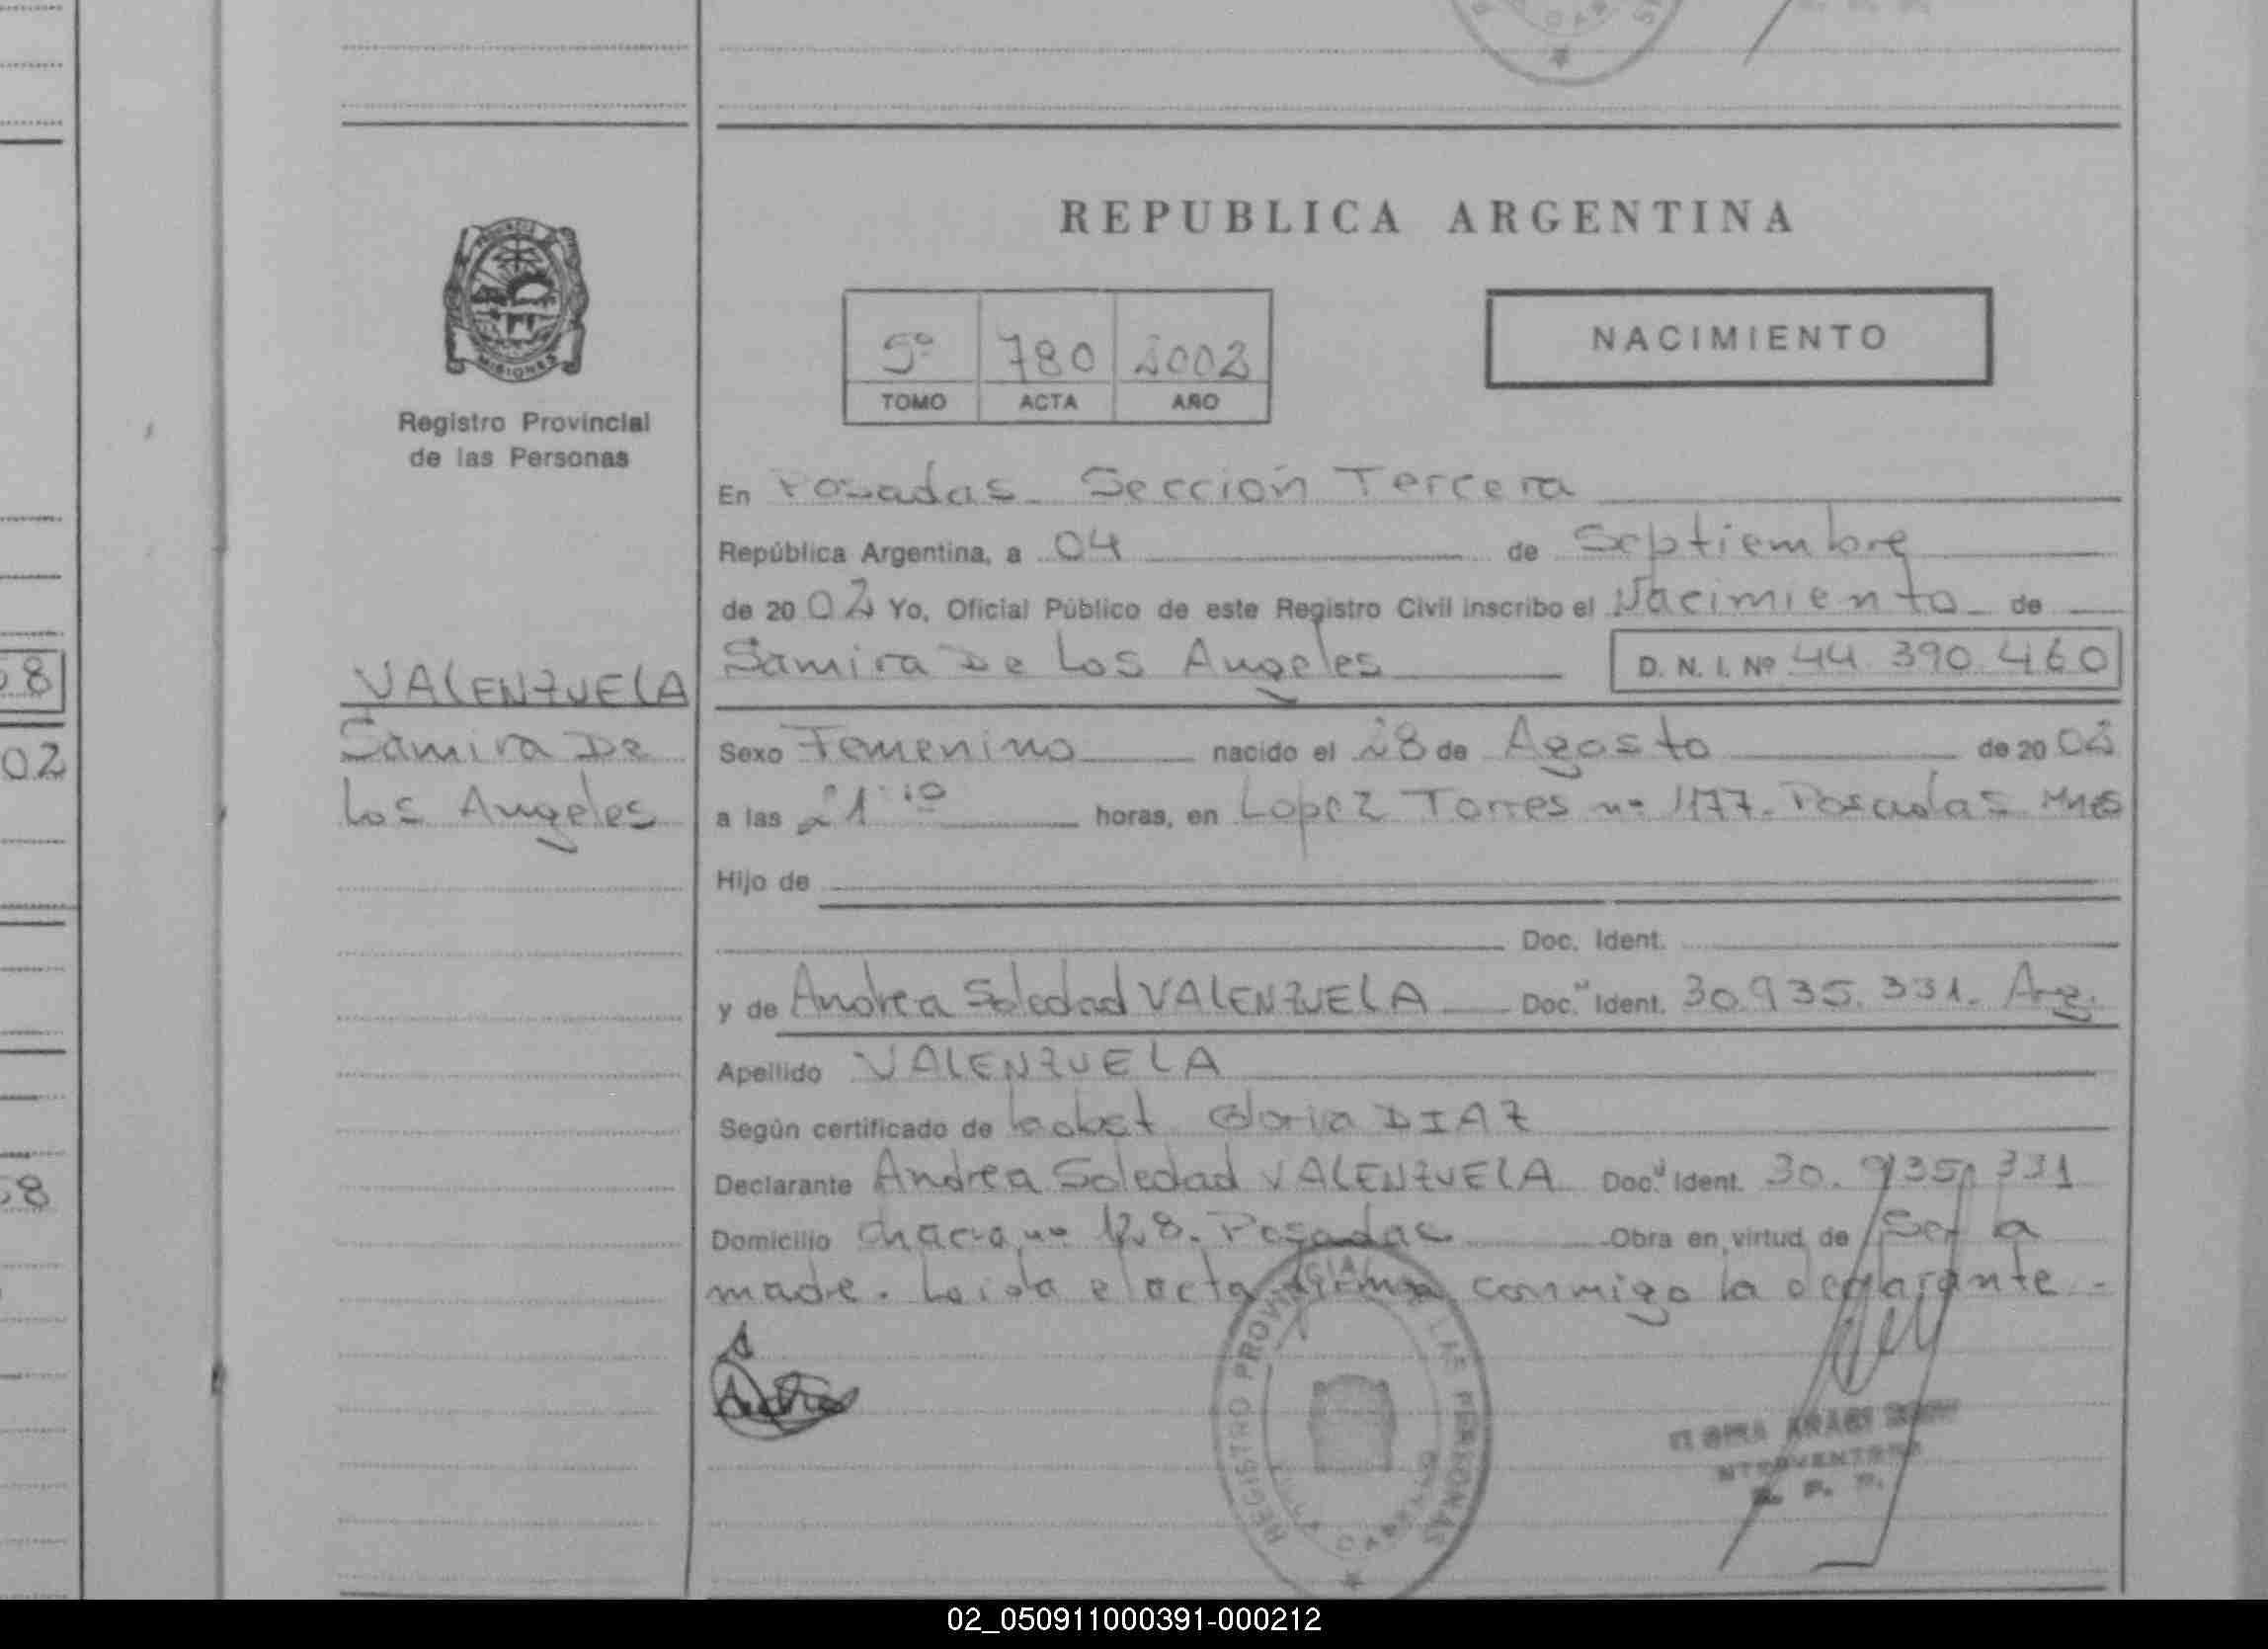 REPUBLICA ARGENTINA
PROVINCIA DE
MISIONES
Registro Provincial
de las Personas
5º 780 2002
TOMO ACTA AÑO
NACIMIENTO
En Posadas - Sección Tercera
República Argentina, a 04 de Septiembre
de 2002 Yo, Oficial Público de este Registro Civil inscribo el Nacimiento de
Samira De Los Angeles D. N. I. Nº 44 390 460
VALENZUELA
Samira De
Los Angeles
Sexo Femenino nacido el 28 de Agosto de 2002
a las 21 10 horas, en Lopez Torres nº 1177. Posadas Mnes
Hijo de
Doc. Ident.
y de Andrea Soledad VALENZUELA Doc. Ident. 30.935.331. Arg.
Apellido VALENZUELA
Según certificado de Gloria DIAZ
Declarante Andrea Soledad VALENZUELA Doc. Ident. 30.935.331
Domicilio chacra nº 128. Posadas Obra en virtud de Ser la
madre. Leida el acta firma conmigo la declarante.
REGISTRO PROVINCIAL DE LAS PERSONAS
R. P. P.
58
02
58
02_050911000391-000212